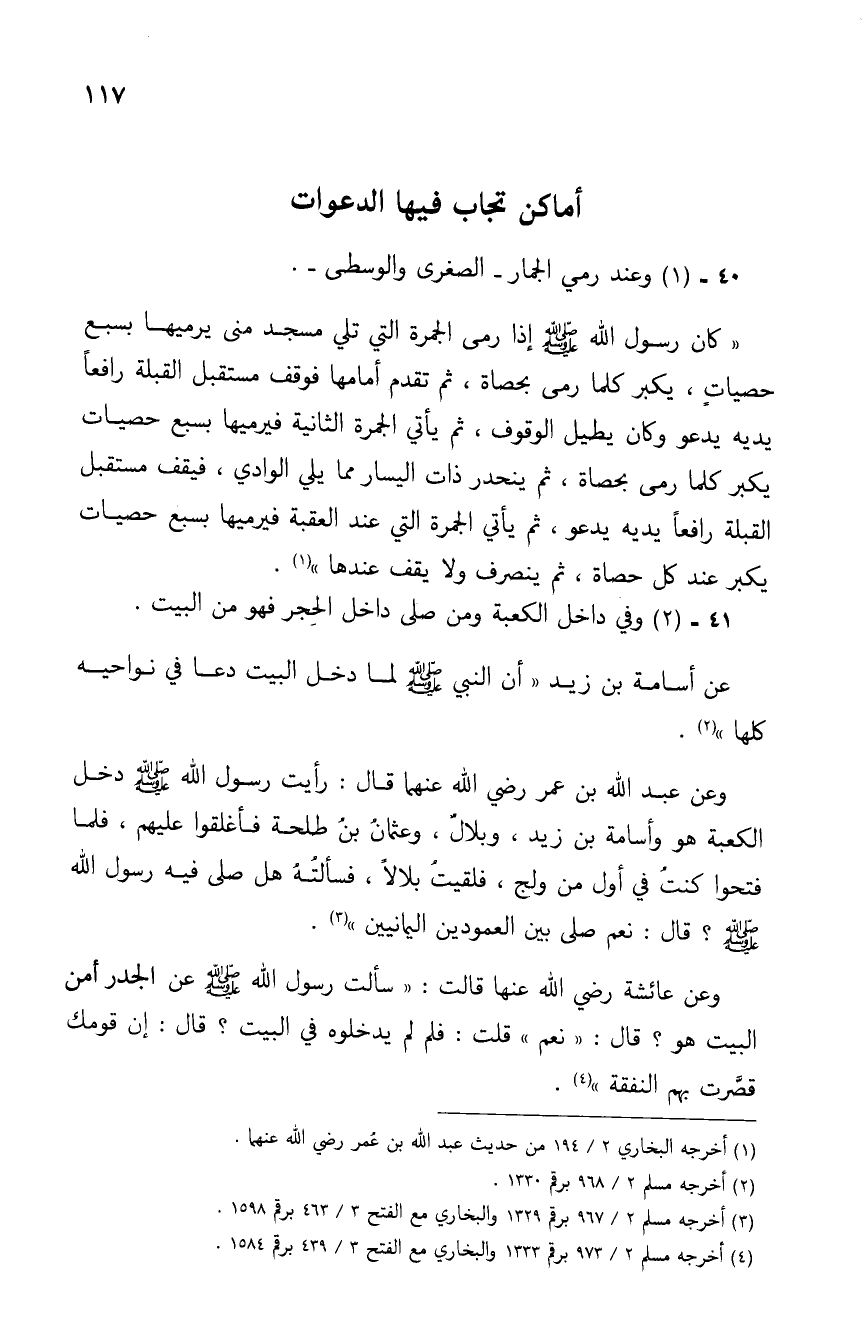 ١١٧
أماكن تجاب فيها الدعوات
٤٠ ـ (١) وعند رمي الجمار ـ الصغرى والوسطى ـ .
« كان رسول الله ﷺ إذا رمى الجمرة التي تلي مسجد منى يرميها بسبع
حصياتٍ ، يكبر كلما رمى بحصاة ، ثم تقدم أمامها فوقف مستقبل القبلة رافعاً
يديه يدعو وكان يطيل الوقوف ، ثم يأتي الجمرة الثانية فيرميها بسبع حصيات
يكبر كلما رمى بحصاة ، ثم ينحدر ذات اليسار مما يلي الوادي ، فيقف مستقبل
القبلة رافعاً يديه يدعو ، ثم يأتي الجمرة التي عند العقبة فيرميها بسبع حصيات
يكبر عند كل حصاة ، ثم ينصرف ولا يقف عندها »(١) .
٤١ ـ (٢) وفي داخل الكعبة ومن صلى داخل الحِجر فهو من البيت .
عن أسامة بن زيد « أن النبي ﷺ لما دخل البيت دعا في نواحيه
كلها »(٢) .
وعن عبد الله بن عمر رضي الله عنهما قال : رأيت رسول الله ﷺ دخل
الكعبة هو وأسامة بن زيد ، وبلالٌ ، وعثمانُ بنُ طلحة فأغلقوا عليهم ، فلما
فتحوا كنتُ في أول من ولج ، فلقيتُ بلالاً ، فسألتُهُ هل صلى فيه رسول الله
ﷺ ؟ قال : نعم صلى بين العمودين اليمانيين »(٣) .
وعن عائشة رضي الله عنها قالت : « سألت رسول الله ﷺ عن الجدر أمن
البيت هو ؟ قال : « نعم » قلت : فلم لم يدخلوه في البيت ؟ قال : إن قومك
قصَّرت بهم النفقة »(٤) .
(١) أخرجه البخاري ٢ / ١٩٤ من حديث عبد الله بن عُمر رضي الله عنهما .
(٢) أخرجه مسلم ٢ / ٩٦٨ برقم ١٣٣٠ .
(٣) أخرجه مسلم ٢ / ٩٦٧ برقم ١٣٢٩ والبخاري مع الفتح ٣ / ٤٦٣ برقم ١٥٩٨ .
(٤) أخرجه مسلم ٢ / ٩٧٣ برقم ١٣٣٣ والبخاري مع الفتح ٣ / ٤٣٩ برقم ١٥٨٤ .